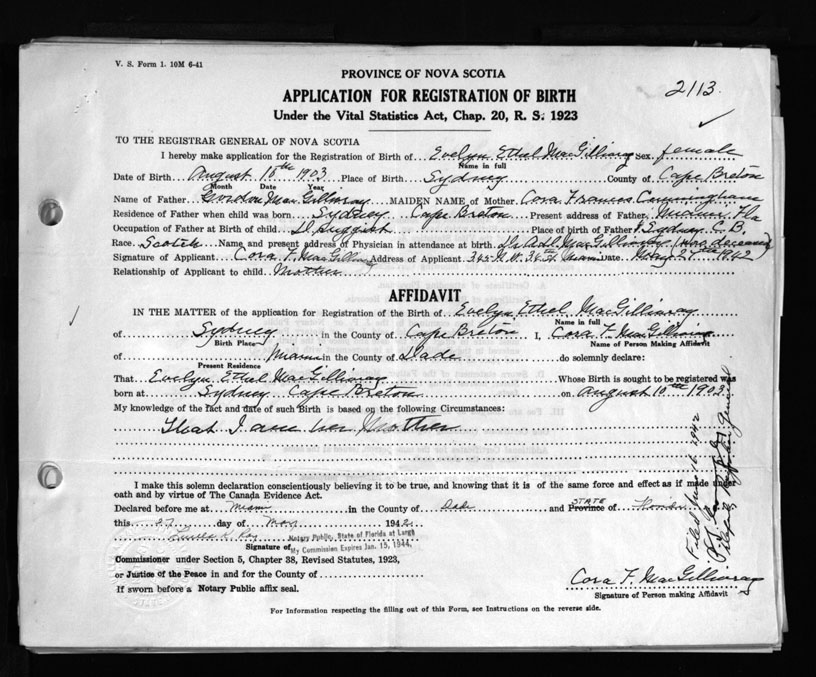 V. S. Form 1- 10M 6-41
PROVINCE OF NOVA SCOTIA
2113
APPLICATION FOR REGISTRATION OF BIRTH
Under the Vital Statistics Act, Chap. 20, R. S. 1923
TO THE REGISTRAR GENERAL OF NOVA SCOTIA
I hereby make application for the Registration of Birth of Evelyn Ethel MacGillivray Sex female
Name in full
Date of Birth August 10th 1903 Place of Birth Sydney County of Cape Breton
Month Date Year
Name of Father Gordon MacGillivray MAIDEN NAME of Mother Cora Frances Cunningham
Residence of Father when child was born Sydney Cape Breton Present address of Father Miami Fla
Occupation of Father at Birth of child Druggist Place of birth of Father Sydney C. B.
Race Scotch Name and present address of Physician in attendance at birth MacGillivray (now deceased)
Signature of Applicant Cora F. MacGillivray Address of Applicant 345 N. W. 36 St. Miami Date May 27th 1942
Relationship of Applicant to child Mother
AFFIDAVIT
IN THE MATTER of the application for Registration of the Birth of Evelyn Ethel MacGillivray
Name in full
of Sydney in the County of Cape Breton I, Cora F. MacGillivray
Birth Place Name of Person Making Affidavit
of Miami in the County of Dade do solemnly declare:
Present Residence
That Evelyn Ethel MacGillivray Whose Birth is sought to be registered was
born at Sydney Cape Breton on August 10th 1903.
My knowledge of the fact and date of such Birth is based on the following Circumstances:
That I am her Mother
I make this solemn declaration conscientiously believing it to be true, and knowing that it is of the same force and effect as if made under
oath and by virtue of The Canada Evidence Act.
Declared before me at Miami in the County of Dade and Province of Florida
STATE
this 27 day of May 1942
Notary Public, State of Florida at Large
Signature of My Commission Expires Jan. 15, 1944.
Commissioner under Section 5, Chapter 38, Revised Statutes, 1923,
or Justice of the Peace in and for the County of
If sworn before a Notary Public affix seal.
Cora F. MacGillivray
Signature of Person making Affidavit
For Information respecting the filling out of this Form, see Instructions on the reverse side.
Filed June 16 1942